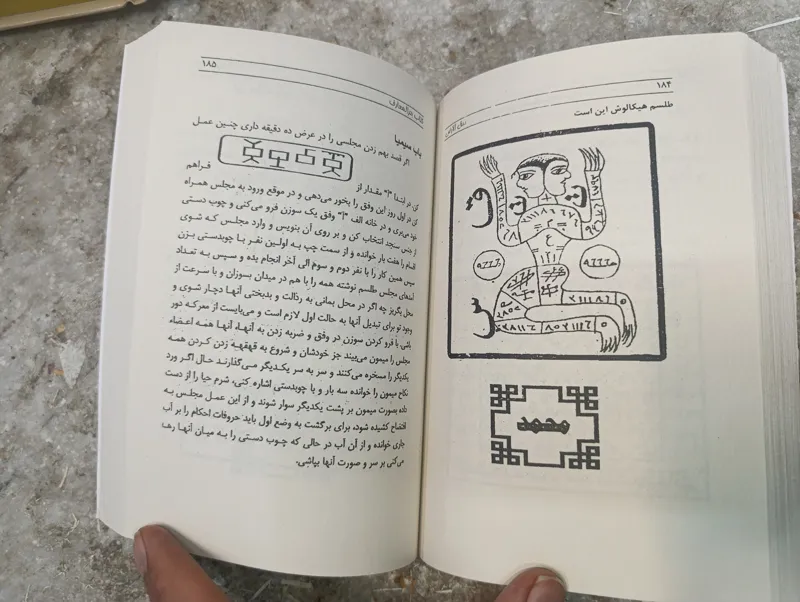 ۱۸۴
طلسم هیکالوش این است
ق
ث
ث
۹۶۶۶
۹۶۶۶
محمد
۱۸۵
باب سیمیا
اگر قصد بهم زدن مجلسی را در عرض ده دقیقه داری چنین عمل
کن در ابتدا "۱" مقدار از
فراهم
کن در اول روز این وفق را بخور می‌دهی و در موقع ورود به مجلس همراه
خود می‌بری و در خانه الف "۱" وفق یک سوزن فرو می‌کنی و چوب دستی
از جنس سنجد انتخاب کن و بر روی آن بنویس و وارد مجلس که شوی
اقسام را هفت بار خوانده و از سمت چپ به اولین نفر با چوبدستی بزن
سپس همین کار را با نفر دوم و سوم الی آخر انجام بده و سپس به تعداد
آدمهای مجلس طلسم نوشته همه را با هم در میدان بسوزان و با سرعت از
محل بگریز چه اگر در محل بمانی به رذالت و بدبختی آنها دچار شوی و
وجود تو برای تبدیل آنها به حالت اول لازم است و می‌بایست از معرکه دور
باشی با فرو کردن سوزن در وفق و ضربه زدن به آنها، آنها همه اعضاء
مجلس را میمون می‌بیند جز خودشان و شروع به قهقهه زدن کردن همه
یکدیگر را مسخره می‌کنند و سر به سر یکدیگر می‌گذارند حال اگر ورد
نکاح میمون را خوانده سه بار و با چوبدستی اشاره کنی، شرم حیا را از دست
داده بصورت میمون بر پشت یکدیگر سوار شوند و از این عمل مجلس به
افتضاح کشیده شود، برای برگشت به وضع اول باید حروفات احکام را بر آب
جاری خوانده و از آن آب در حالی که چوب دستی را به میان آنها رها
می‌کنی بر سر و صورت آنها بپاشی.